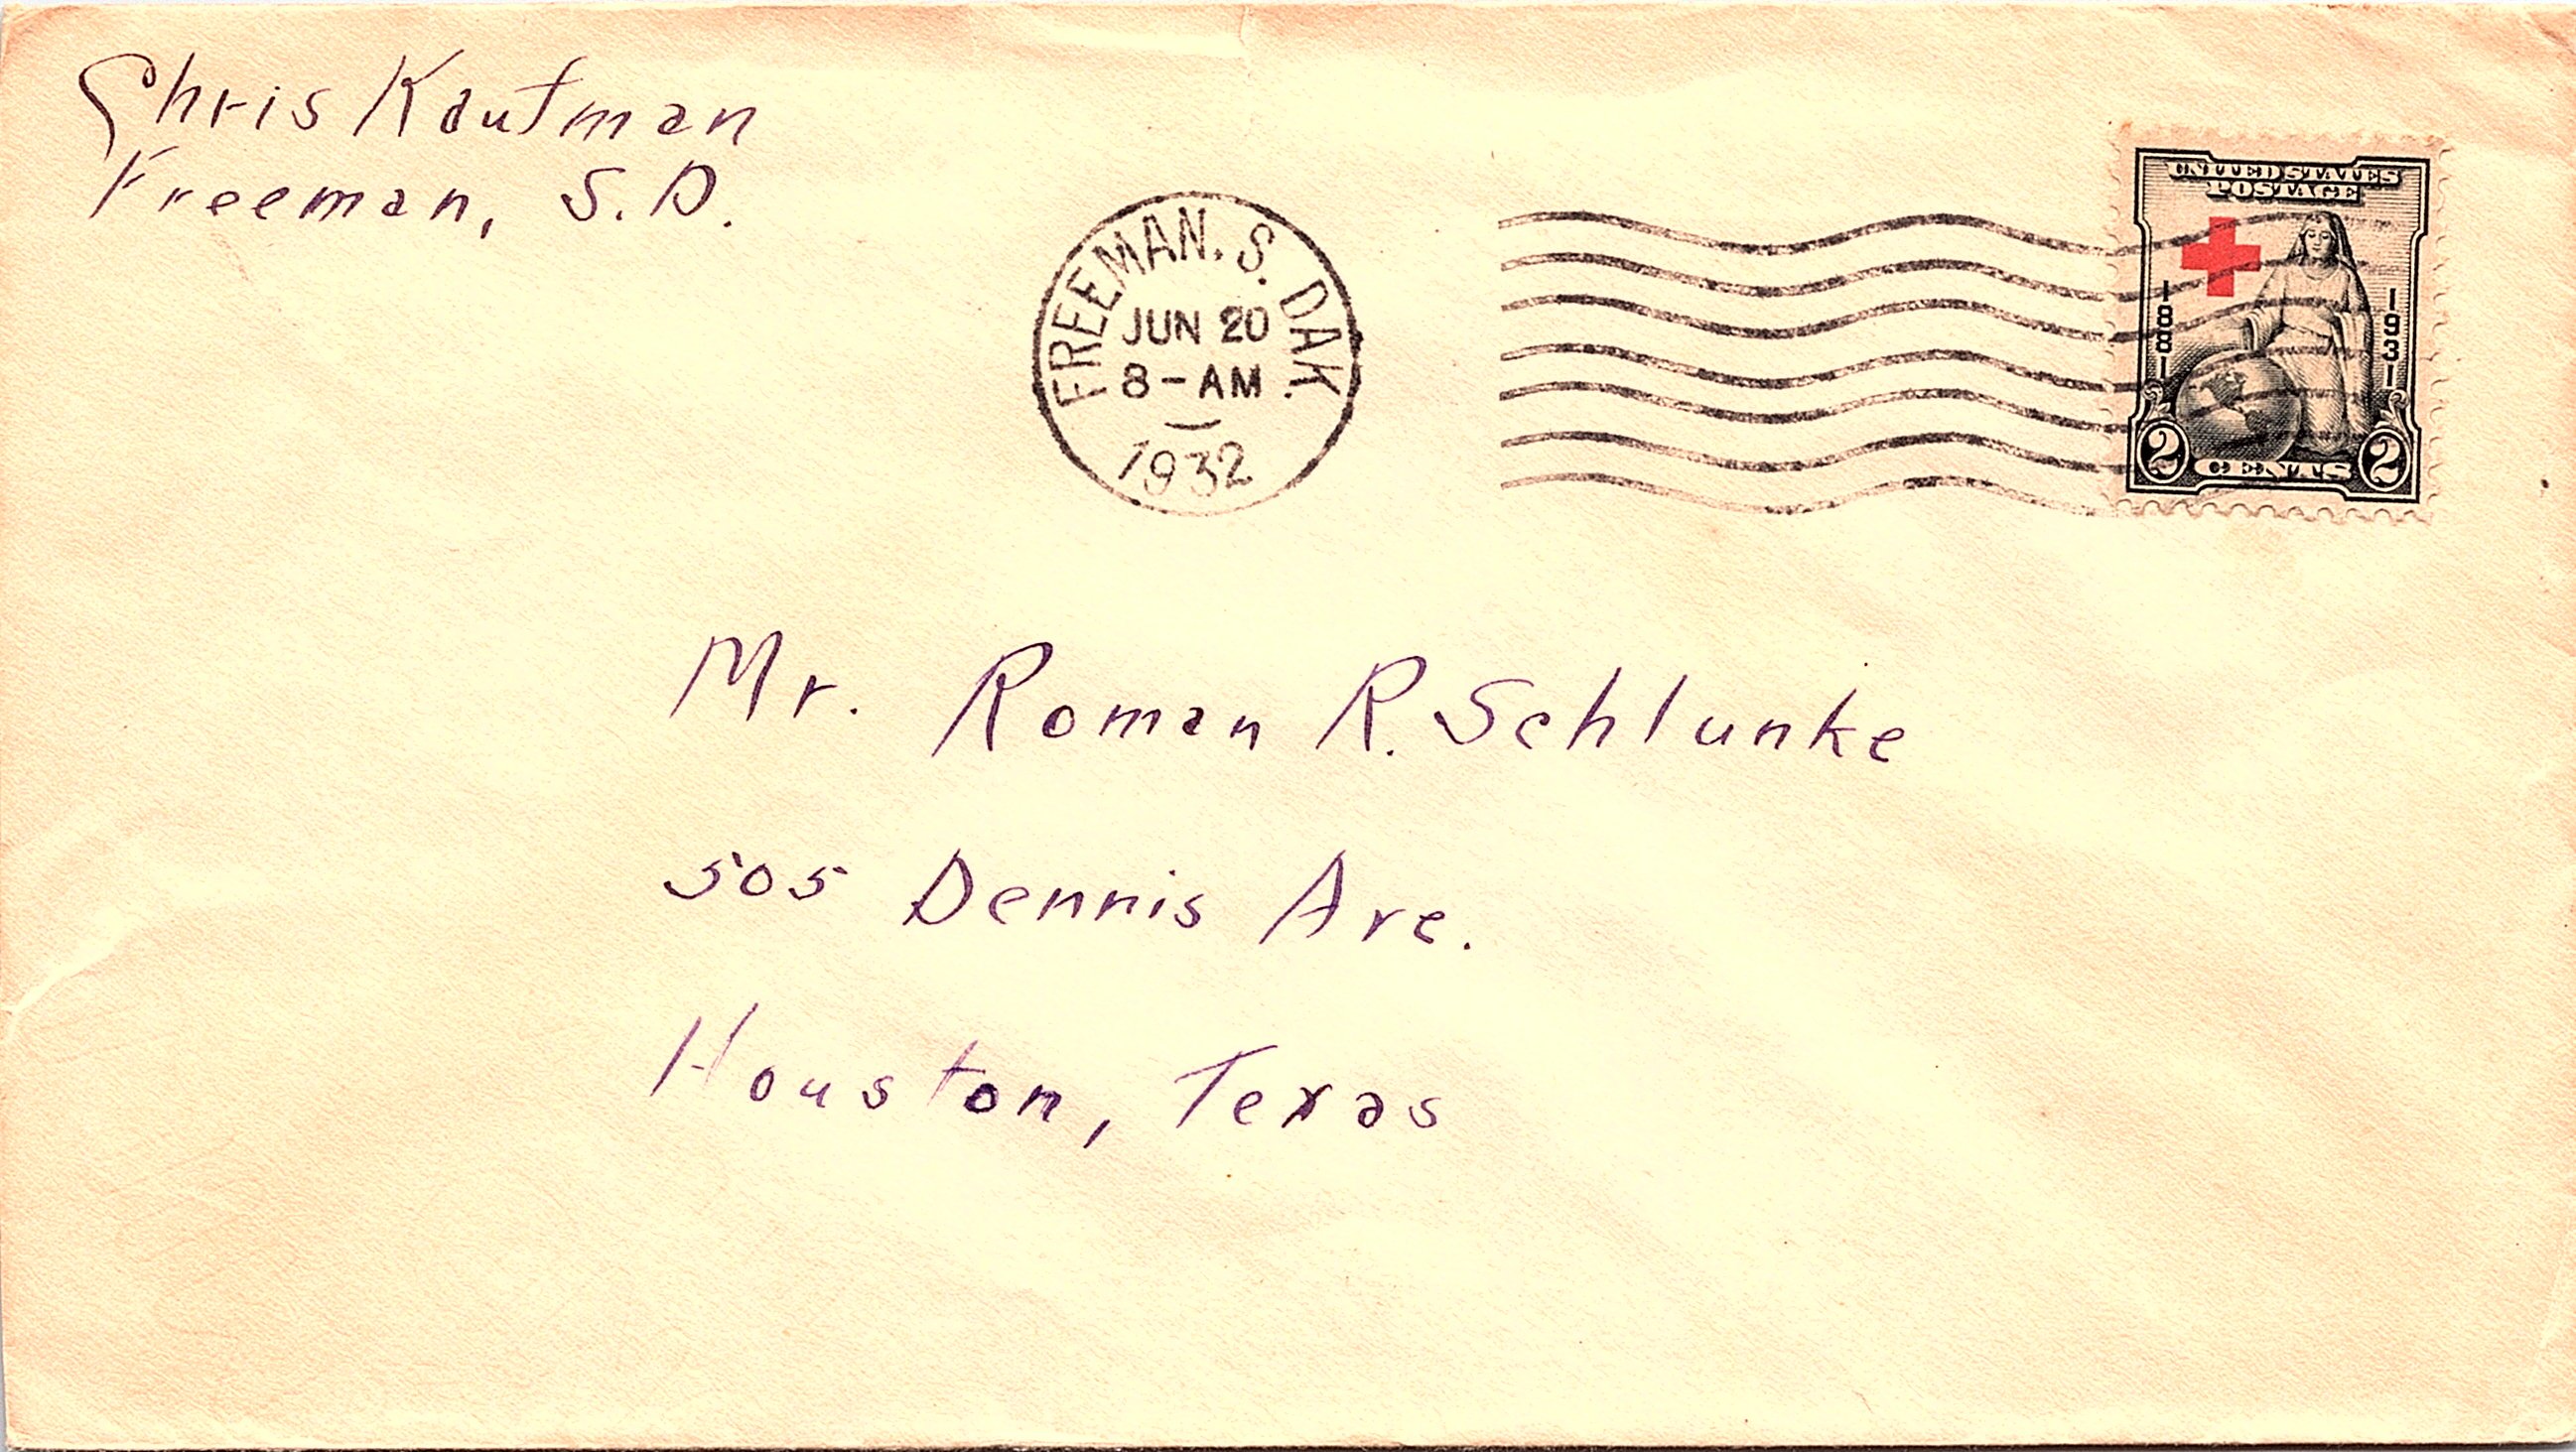 Chris Kaufman
Freeman, S.D.
FREEMAN, S. DAK.
JUN 20
8-AM
1932
UNITED STATES
POSTAGE
1881
1931
2 CENTS 2
Mr. Roman R. Schlunke
505 Dennis Ave.
Houston, Texas